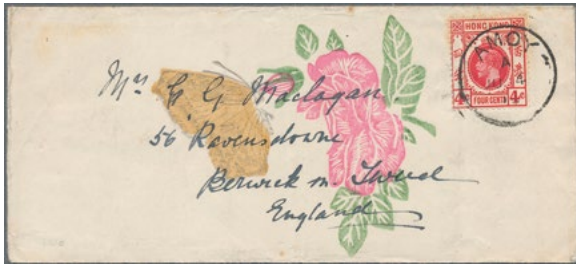 HONG KONG
AMOY
A
4c FOUR CENTS 4c
Mrs G. G. Maclagan
56 Ravensdowne
Berwick on Tweed
England